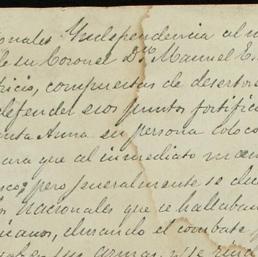 onales Yndependencia al m
de su Coronel Dn Manuel
tricio, compuestas de desertor
defender esos puntos fortific
anta Anna en persona coloc
para que al inmediato man
sco; pero generalmente se
los Nacionales que se hallaban
canos, durando el combate
sus armas, y se